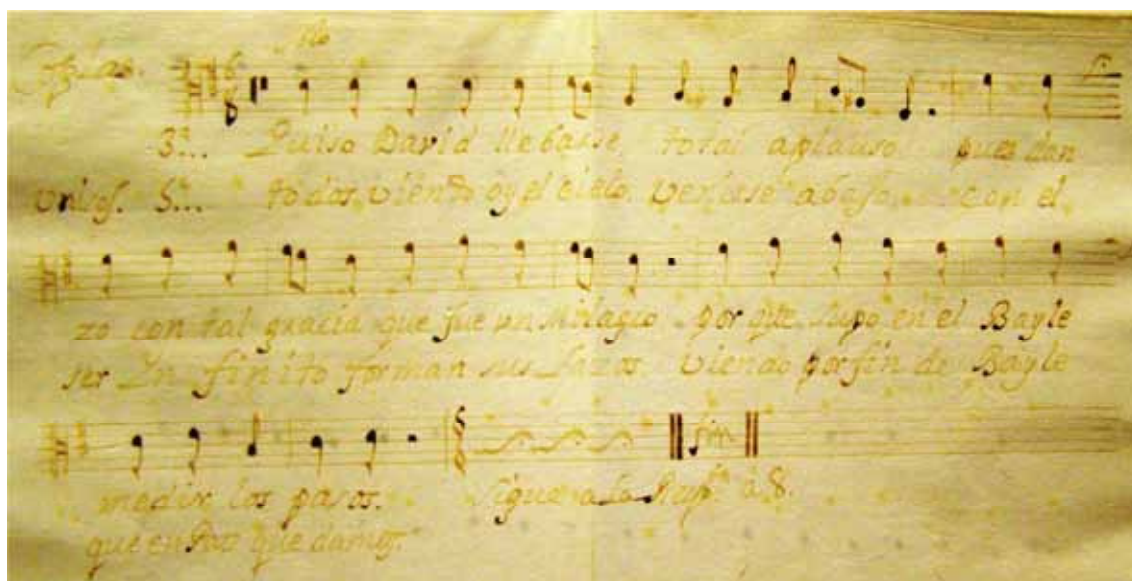 Coplas. Allo
3ª... Quiso David llebarse total aplauso pues dan
Unisos. 5ª... todos viendo oy el cielo verse abajo con el
zo con tal gracia que fue un milagro por que supo en el Bayle
ser Infinito forman sus lazos. viendo por fin de Bayle
medir los pasos. sigue a la Respta a 8.
que en Paz quedamos.